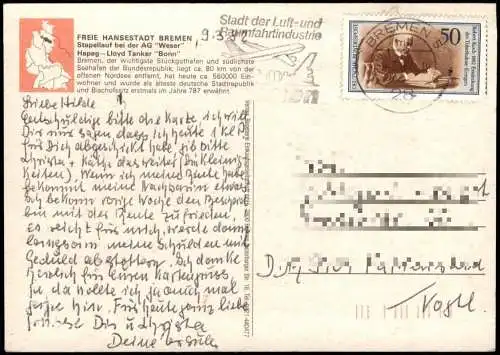 FREIE HANSESTADT BREMEN
Stapellauf bei der AG "Weser"
Hapag - Lloyd Tanker "Bonn"
Bremen, der wichtigste Stückguthafen und südlichste
Seehafen der Bundesrepublik, liegt ca. 80 km von der
offenen Nordsee entfernt, hat heute ca. 560000 Ein-
wohner und wurde als älteste deutsche Stadtrepublik
und Bischofssitz erstmals im Jahre 787 erwähnt.
Stadt der Luft- und
Raumfahrtindustrie
BREMEN
28
50
Robert Koch 1882 Entdeckung
des Tuberkulose-Erregers
Liebe Hilde!
Entschuldige bitte die Karte, ich will
Dir nur sagen dass ich heute 1 kl P
für Dich abgeschickt habe gib bitte
Christa + Käthe das weiter (Die Kleinig-
keiten). Wenn ich meine Rente habe
bekommt meine Nachbarin etwas
Ich bekam vorige Woche den Bescheid
bin mit der Rente zufrieden,
es reicht für mich, werde dann
langsam meine Schulden und
Geduld abstottern. Ich danke
herzlich für Euren Kartengruss,
ja da wollte ich ja auch mal
gerne hin. Für heute ganz liebe
Grüsse Dir u. Christa
Deine Ursula
Vogtl